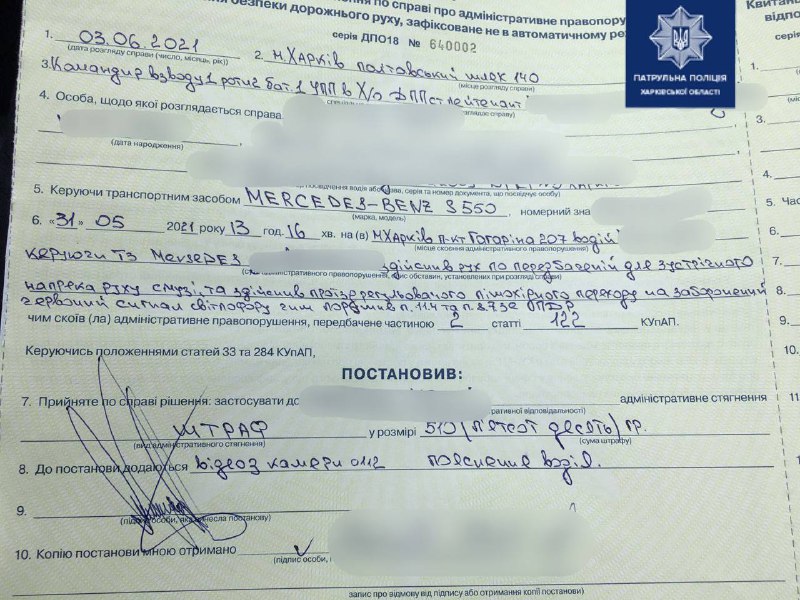 безпеки дорожнього руху, зафіксоване не в автоматичному
ня по справі про адміністративне правопору
серія ДПО18 № 640002
Квитан
відпо
серія
ПАТРУЛЬНА ПОЛІЦІЯ
ХАРКІВСЬКОЇ ОБЛАСТІ
1. 03.06.2021 2. м.Харків Полтавський шлях 140
(дата розгляду справи (число, місяць, рік)) (місце розгляду справи)
3. Командир взводу 1 роти 2 бат. 1 УПП в Х/о ДПП ст лейтенант
розглядає справу)
4. Особа, щодо якої розглядається справа
(дата народження)
серія та номер документа, що посвідчує особу)
5. Керуючи транспортним засобом MERCEDES-BENZ S550, номерний зна
(марка, модель)
6. «31» 05 2021 року 13 год. 16 хв. на (в) м.Харків п-кт Гагаріна 207 водій
(місце скоєння адміністративного правопорушення)
керуючи ТЗ Mersedes здійснив рух по передбаченій для зустрічного
адміністративного правопорушення, опис обставин, установлених при розгляді справи)
напрека руху смузі, та здійснив проїзд регульованого пішохідного переходу на заборонений
червоний сигнал світлофору чим порушив п. 11.4 та п. 8.7.3е ПДР
чим скоїв (ла) адміністративне правопорушення, передбачене частиною 2 статті 122 КУпАП.
Керуючись положеннями статей 33 та 284 КУпАП,
ПОСТАНОВИВ:
7. Прийняте по справі рішення: застосувати до адміністративне стягнення
ративної відповідальності)
ШТРАФ у розмірі 510 (п'ятсот десять) гр.
(вид адміністративного стягнення) (сума штрафу)
8. До постанови додаються відео з камери 0112 пояснення водія.
9.
(підпис особи, яка винесла постанову)
10. Копію постанови мною отримано
(підпис особи,
запис про відмову від підпису або отримання копії постанови)
1.
3.
4.
5.
6.
7.
8.
9.
10.
11.